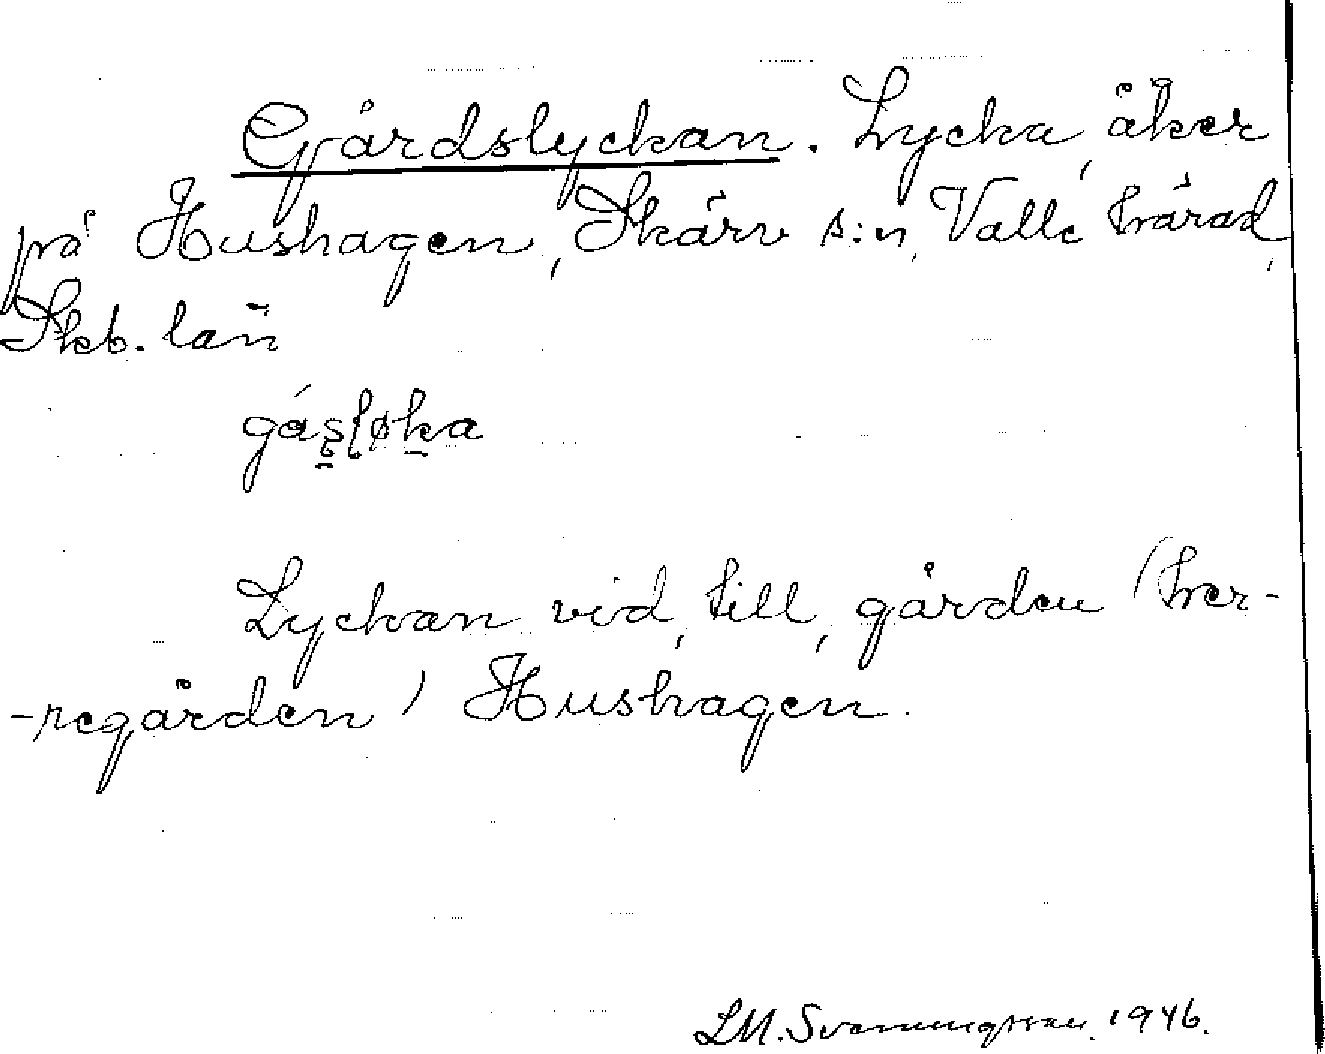 Gårdslyckan. Lycka, åker
på Hushagen, Skärv s:n, Valle härad,
Skb. län
gás̠ḷøka
Lyckan vid, till, gården (her-
-regården) Hushagen.
LM. Svenungsson. 1946.